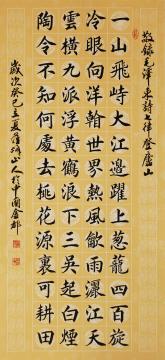 敬錄毛澤東詩七律登廬山
一山飛峙大江邊躍上葱蘢四百旋
冷眼向洋看世界熱風吹雨灑江天
雲橫九派浮黃鶴浪下三吳起白煙
陶令不知何處去桃花源裏可耕田
歲次癸巳夏山人